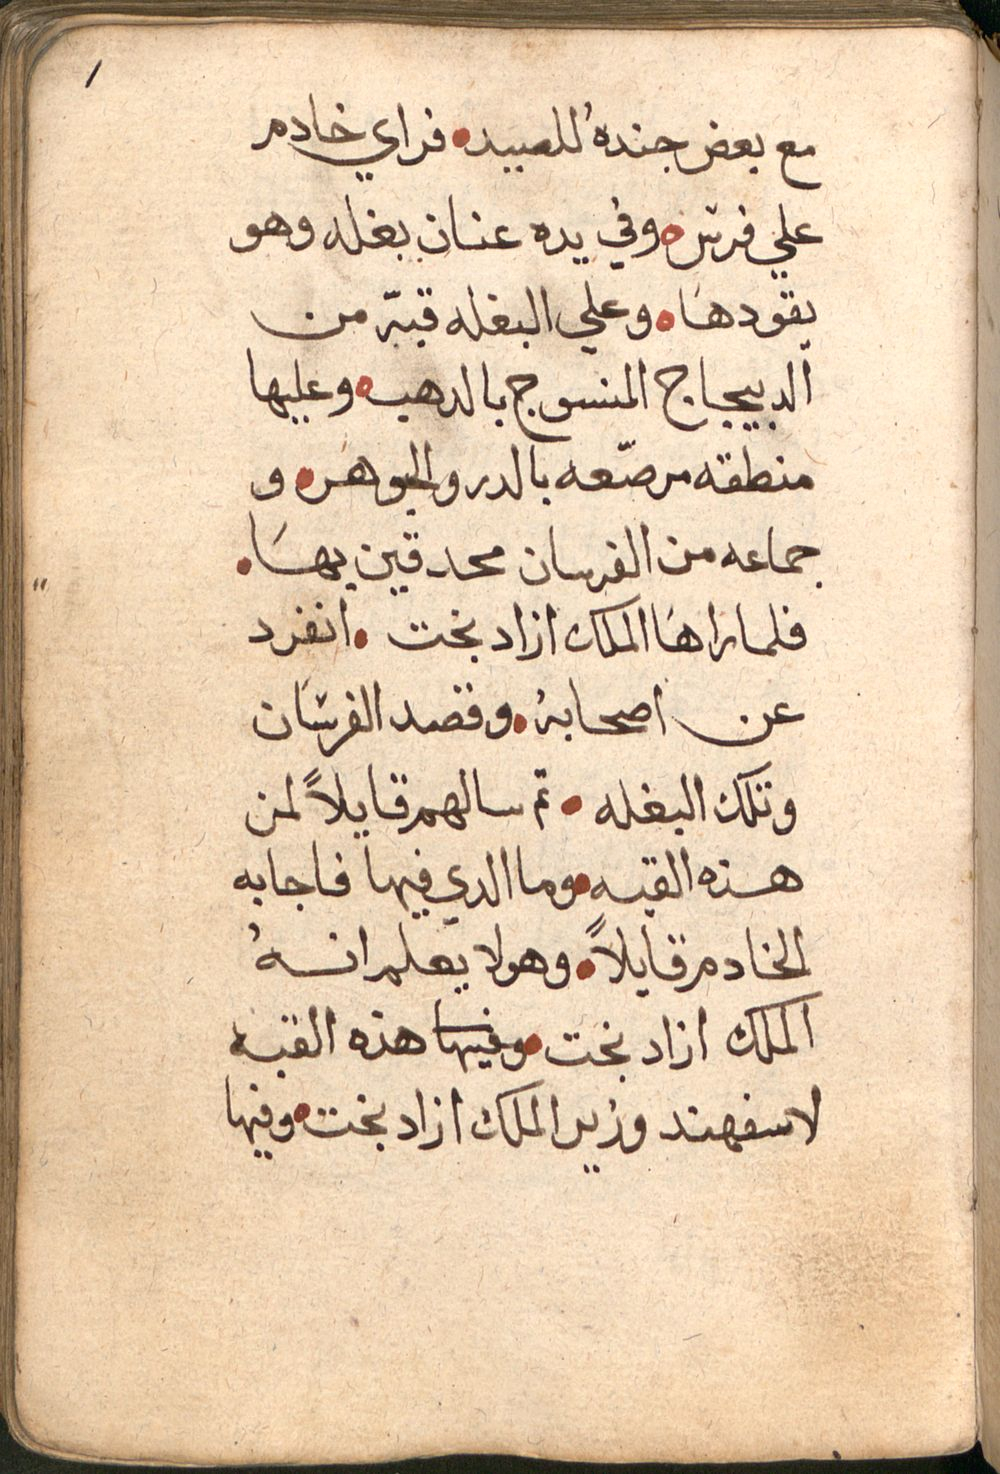 ١
مع بعض جندهُ للصيد • فراي خادم
علي فرس • وفي يده عنان بغله وهو
يقودهَا • وعلي البغله قبّه من
الديبجاج المنسوج بالدهب • وعليها
منطقه مرصّعه بالدر والجوهر • و
جماعه من الفرسان محدقين بهَا •
فلما راهَا الملك ازاد بخت • انفرد
عن اصحابهُ • وقصد الفرسَان
وتلك البغله • تم سالهم قايلاً لمن
هذه القبه • وما الدي فيها فاجابه
الخادم قايلاً • وهو لا يعلم انهُ
الملك ازاد بخت • وفيها هذه القبه
لاسفهند وزير الملك ازاد بخت • وفيها